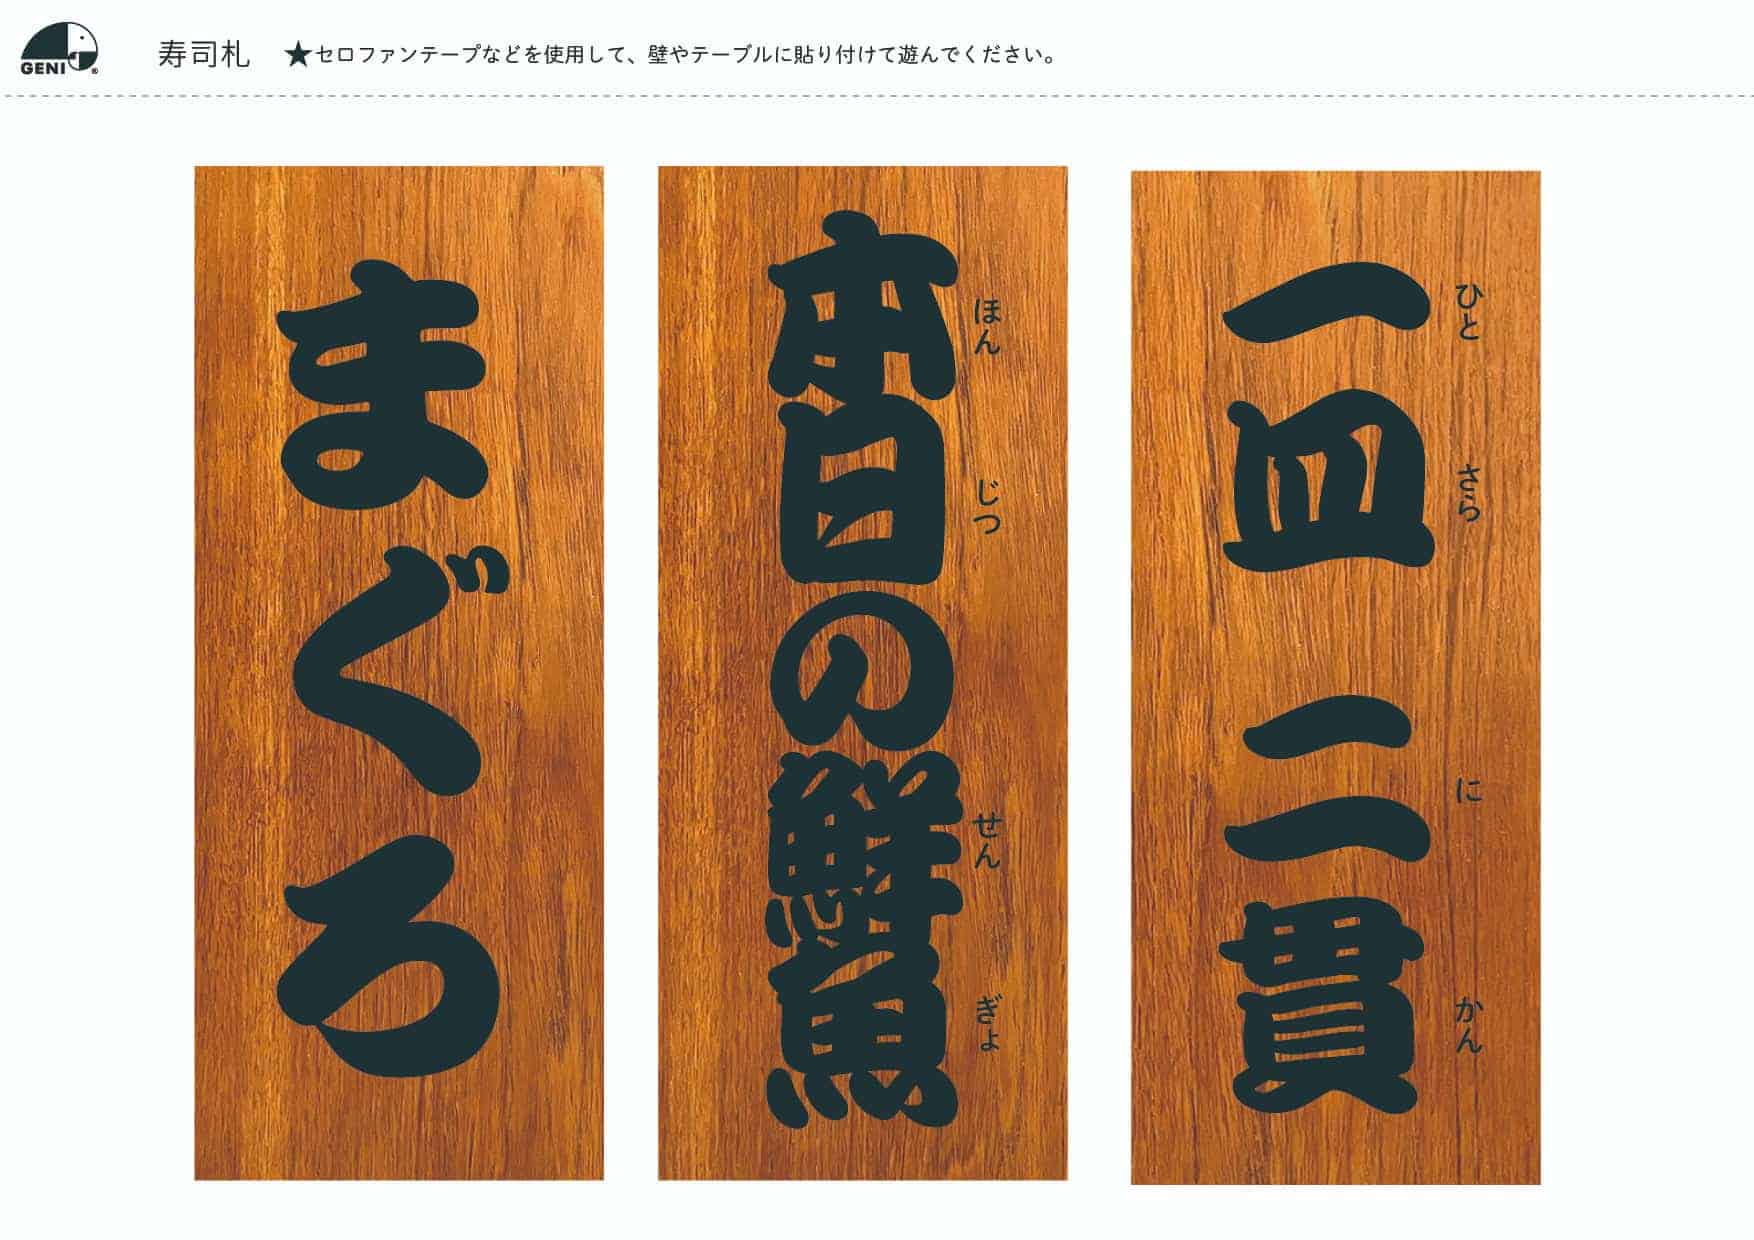 GENI ®
寿司札 ★セロファンテープなどを使用して、壁やテーブルに貼り付けて遊んでください。
まぐろ
本日の鮮魚
ほん じつ せん ぎょ
一皿 二貫
ひと さら に かん